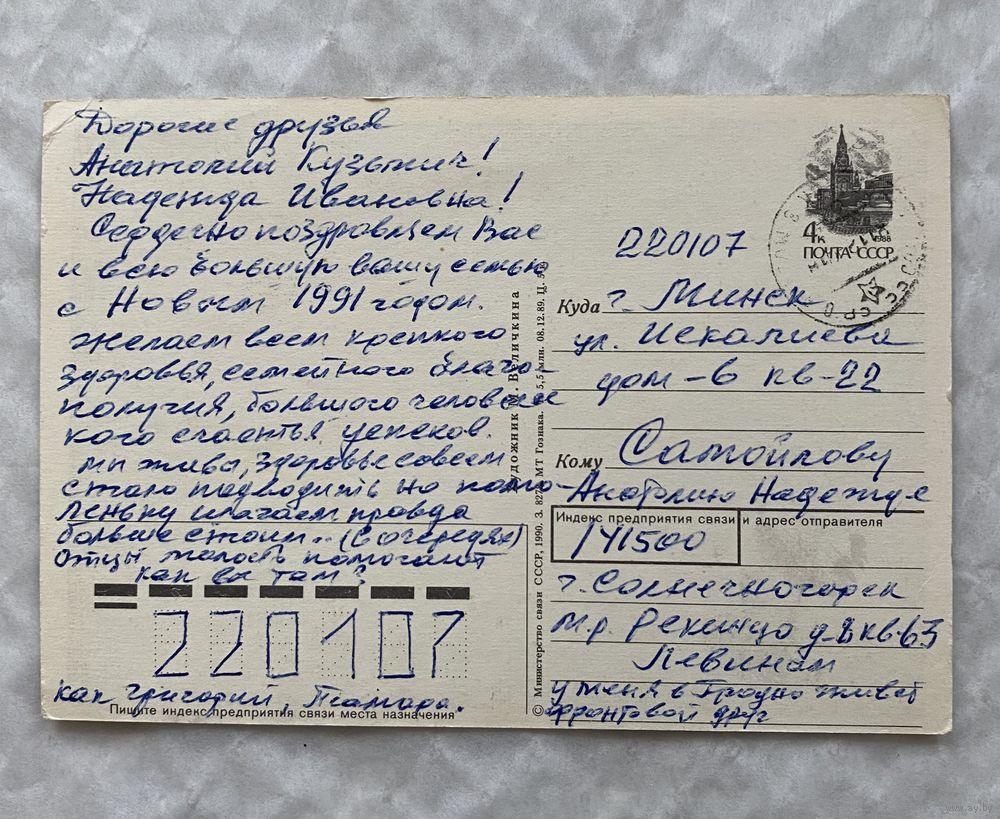 Дорогие друзья
Анатолий Кузьмич!
Надежда Ивановна!
Сердечно поздравляем Вас
и всю большую вашу семью
с Новым 1991 годом.
Желаем всем крепкого
здоровья, семейного благо-
получия, большого человечес
кого счастья, успехов.
мы живы, здоровье совсем
стало подводить но пома-
леньку шагаем правда
больше стоим.. (в очередях)
Отцы малость помогают
как вы там?
220107
как Григорий, Тамара.
Пишите индекс предприятия связи места назначения
© Министерство связи СССР, 1990. З. 827 МТ Гознака. 5,5 млн. 08.12.89. Ц. 5
Художник М. Величкина
4к
1988
ПОЧТА СССР
СССР
220107
Куда г. Минск
ул. Искалиева
дом-6 кв-22
Кому Самойлову
Анатолию Надежде
Индекс предприятия связи и адрес отправителя
141500
г. Солнечногорск
м.р. Рекинцо д-8 кв-63
Левиной
у меня в Гродно живёт
фронтовой друг
www.ay.by